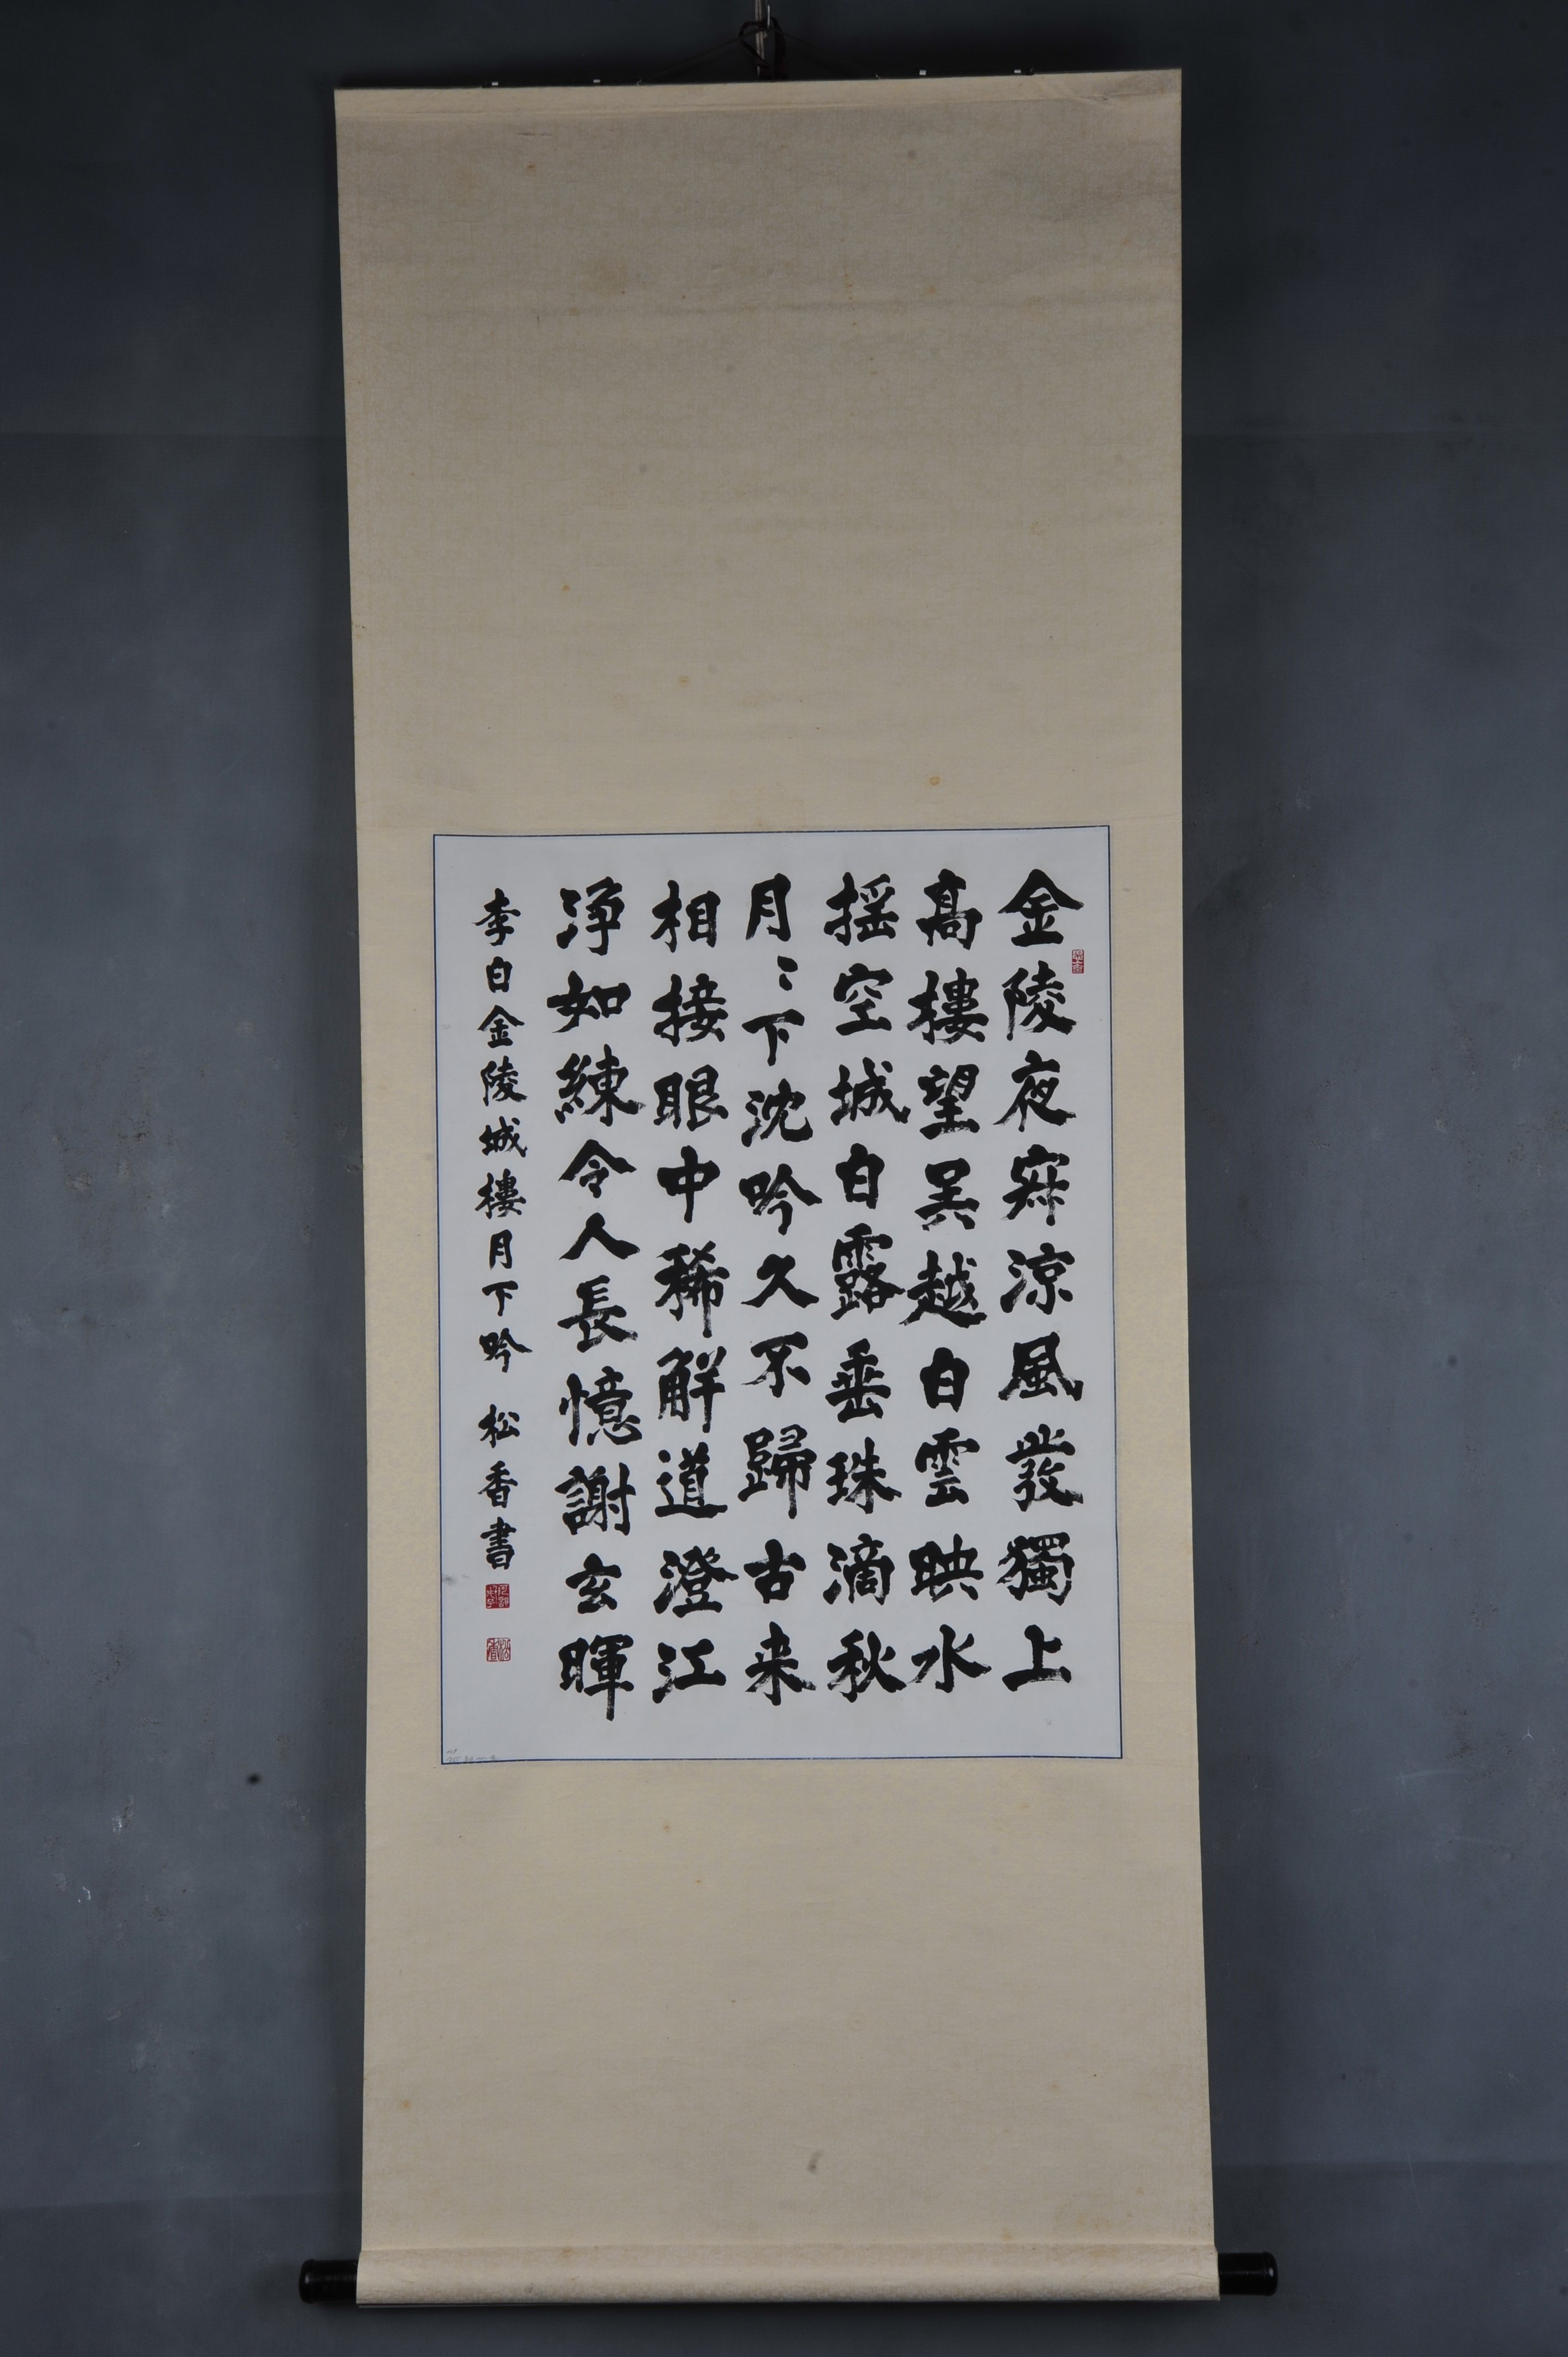 金陵夜寂涼風發獨上
高樓望吴越白雲映水
摇空城白露垂珠滴秋
月〻下沈吟久不歸古来
相接眼中稀解道澄江
浄如練令人長憶謝玄暉
李白金陵城樓月下吟 松香書